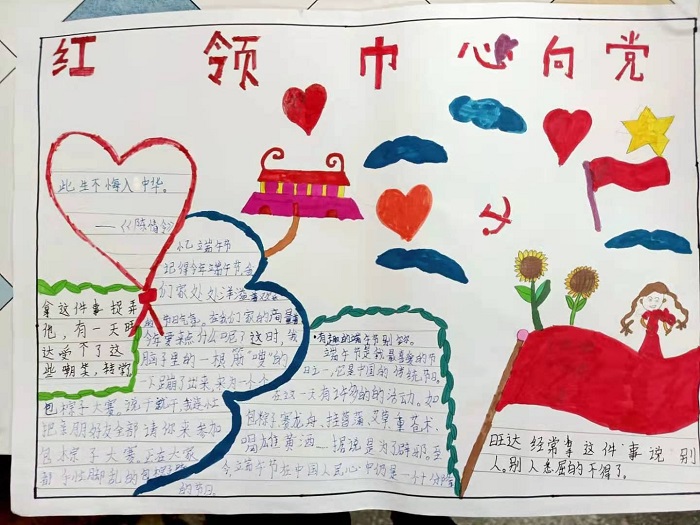 红领巾心向党
此生不悔入中华。
——《陈情令》
忆端午节
记得今年端午节,全
们家处处洋溢着欢
节日气氛。在我们家的商量
今年要来点什么呢?这时,我
脑子里的一根筋“嗖”的
一下蹦了出来,来为一个
包粽子大赛。说干就干,我连忙
把亲朋好友全部请你来参加
包粽子大赛。正在大家
手忙脚乱的包粽子
的节日。
拿这件事捉弄
他,有一天旺
达受不了这
些嘲笑,转学
有趣的端午节别
端午节是我最喜爱的节
日之一,它是中国的传统节日。
在这一天有许多的的活动。如
包粽子,赛龙舟,挂菖蒲、艾草
喝雄黄酒。据说是为了辟邪。至
今,端午节在中国人民心中仍是一个十分
旺达经常拿这件“事”说别
人。别人委屈的不得了。